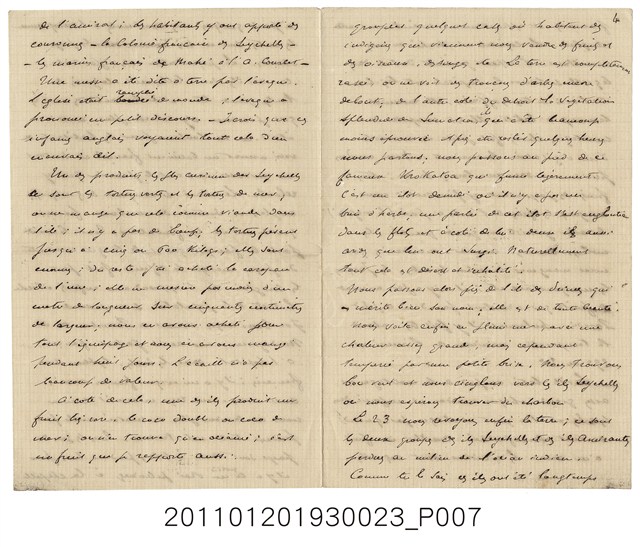 de l'amiral; les habitants y ont apporté des
couronnes - la Colonie française des Seychelles -
- les marins français de Mahé à l'A. Courbet -
Une messe a été dite à terre par l'évêque
L'église était remplie de monde; l'évêque a
prononcé un petit discours - Je crois que ces
anglais voyaient tout cela d'un
mauvais œil.
Un des produits les plus curieux des Seychelles
ce sont les tortues vertes et les tortues de mer,
on ne mange que cela comme viande dans
l'île; il n'y a pas de bœufs, les tortues pèsent
jusqu'à cinq ou 600 kilogs; elles sont
énormes; du reste j'ai acheté la carapace
de l'une; elle ne mesure pas moins d'un
mètre de longueur sur cinquante centimètres
de largeur, nous en avons acheté pour
tout l'équipage et nous en avons mangé
pendant huit jours. L'écaille n'a pas
beaucoup de valeur.
A côté de cela, une des îles produit un
fruit bizarre, le coco double ou coco de
mer; on n'en trouve qu'en ; c'est
un fruit que je rapporte aussi.
4
groupées quelques cases où habitent des
indigènes qui viennent nous vendre des fruits et
des oiseaux, des singes etc. La terre est complètement
rasée on ne voit des troncs d'arbres encore
debout, de l'autre côté du détroit la végétation
splendide de Sumatra qui a été beaucoup
moins éprouvée. Après être restés quelques heures
nous partons. nous passons au pied de ce
fameux Krakatoa qui fume légèrement
C'est un îlot dénudé où il n'y a pas un
brin d'herbe, une partie de cet îlot s'est engloutie
dans les flots et à côté de lui deux îles
que lui ont surgi. Naturellement
tout cela est désert et inhabité.
Nous passons alors près de l'île des Princes qui
mérite bien son nom; elle est de toute beauté.
Nous voilà enfin en pleine mer avec une
chaleur assez grande, mais cependant
tempérée par une petite brise. Nous trouvons
bon vent et nous cinglons vers les îles Seychelles
où nous espérons trouver du charbon
Le 23 nous revoyons enfin la terre; ce sont
les deux groupes des îles Seychelles et des îles Amirantes
perdues au milieu de l'océan indien -
Comme tu le sais ces îles ont été longtemps
201101201930023_P007